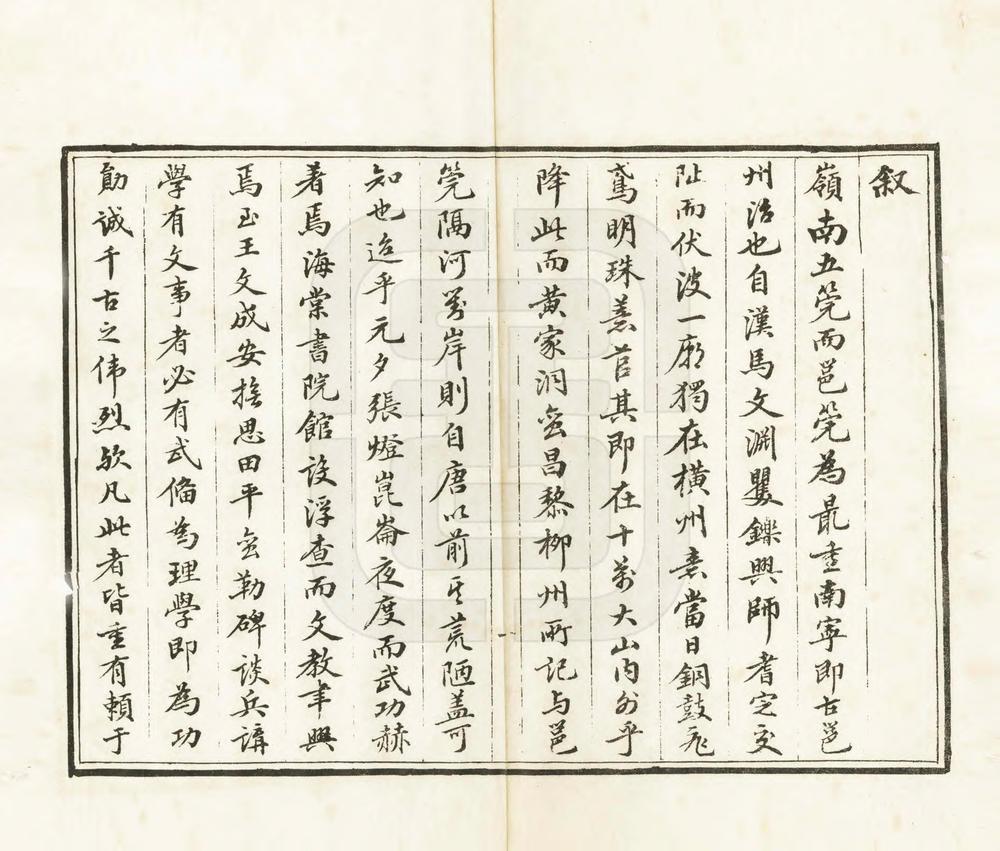 叙
嶺南五筦而邕筦為最重南寧即古邕
州治也自漢馬文淵矍鑠興師耆定交
阯而伏波一廟獨在橫州意當日銅鼓飛
鳶明珠薏苡其即在十萬大山內外乎
降此而黃家洞蠻昌黎柳州所記与邕
筦隔河對岸則自唐以前其荒陋盖可
知也迨乎元夕張燈崑崙夜度而武功赫
著焉海棠書院館設浮查而文教聿興
焉至王文成安撫思田平蠻勒碑談兵講
學有文事者必有武備為理學即為功
勛誠千古之偉烈歟凡此者皆重有賴于